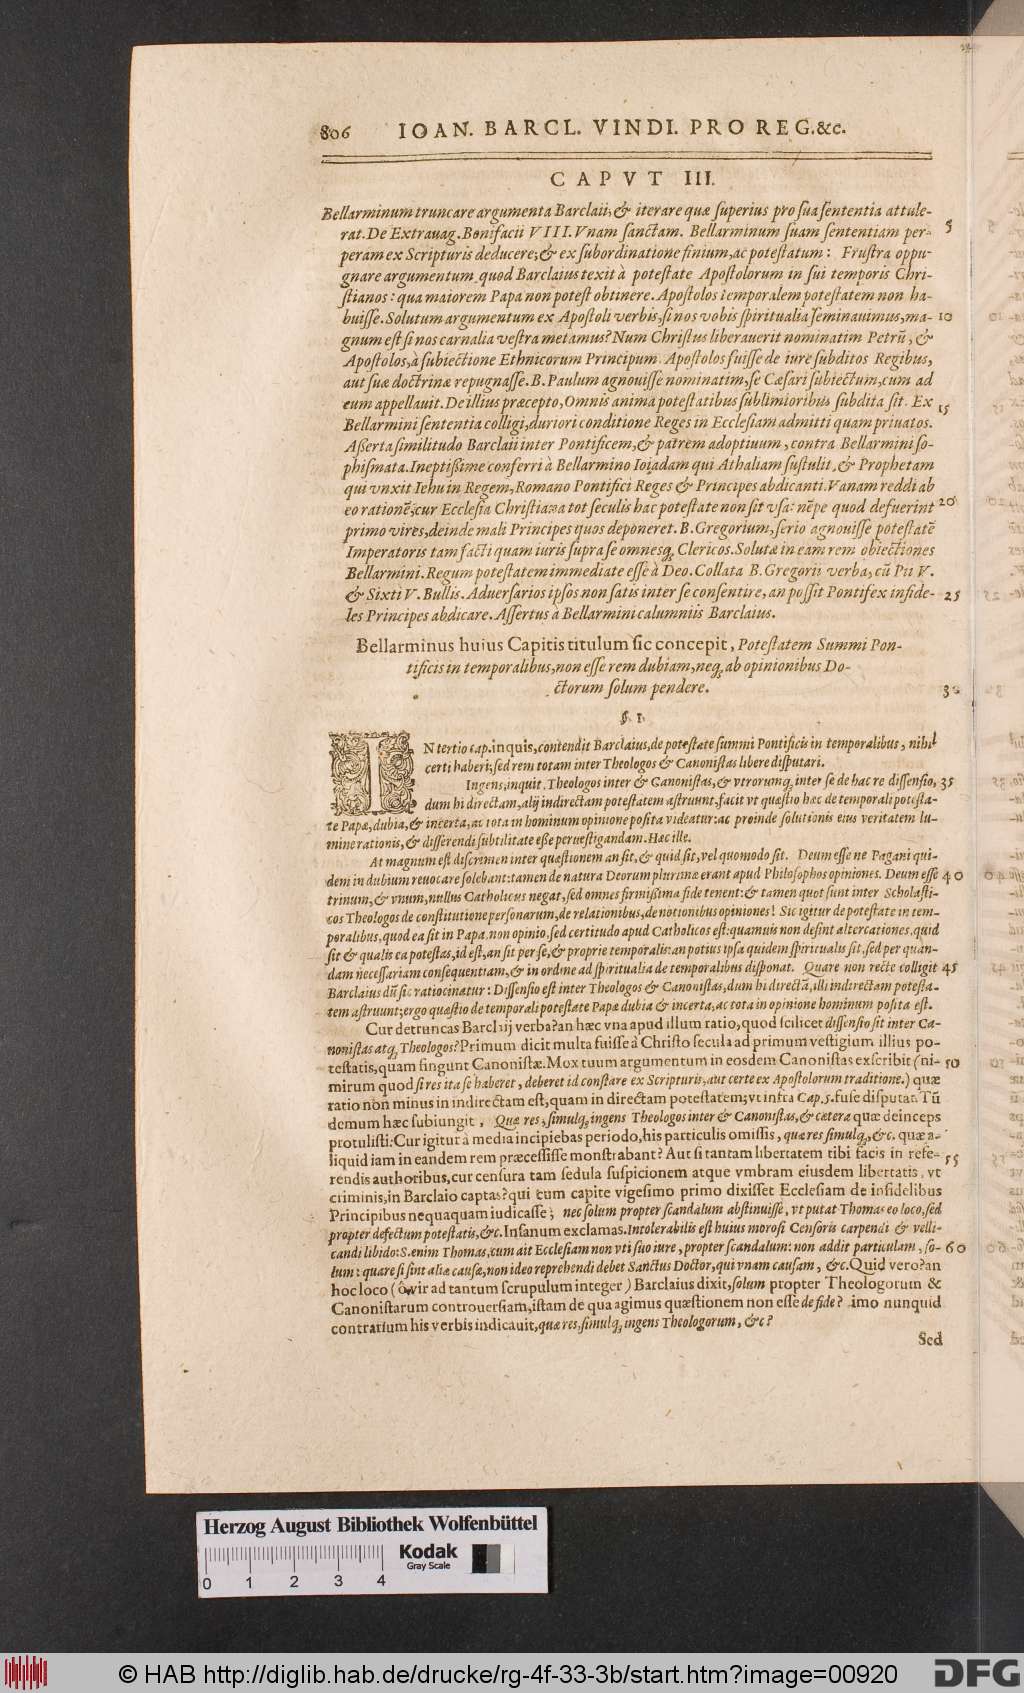 806 IOAN. BARCL. VINDI. PRO REG. &c.
CAPVT III.
Bellarminum truncare argumenta Barclaii, & iterare quæ superius pro sua sententia attule-
rat. De Extrauag. Bonifacii VIII. Vnam sanctam. Bellarminum suam sententiam per- 5
peram ex Scripturis deducere; & ex subordinatione finium, ac potestatum: Frustra oppu-
gnare argumentum quod Barclaius texit à potestate Apostolorum in sui temporis Chri-
stianos: qua maiorem Papa non potest obtinere. Apostolos temporalem potestatem non ha-
buisse. Solutum argumentum ex Apostoli verbis, si nos vobis spiritualia seminauimus, ma- 10
gnum est si nos carnalia vestra metamus? Num Christus liberauerit nominatim Petrũ, &
Apostolos, à subiectione Ethnicorum Principum. Apostolos fuisse de iure subditos Regibus,
aut suæ doctrinæ repugnasse. B. Paulum agnouisse nominatim, se Cæsari subiectum, cum ad
eum appellauit. De illius præcepto, Omnis anima potestatibus sublimioribus subdita sit. Ex 15
Bellarmini sententia colligi, duriori conditione Reges in Ecclesiam admitti quam priuatos.
Aßerta similitudo Barclaii inter Pontificem, & patrem adoptiuum, contra Bellarmini so-
phismata. Ineptißime conferri à Bellarmino Ioiadam qui Athaliam sustulit, & Prophetam
qui vnxit Iehu in Regem, Romano Pontifici Reges & Principes abdicanti. Vanam reddi ab
eo rationẽ; cur Ecclesia Christiana tot seculis hac potestate non sit vsa: nẽpe quod defuerint 20
primo vires, deinde mali Principes quos deponeret. B. Gregorium, serio agnouisse potestatẽ
Imperatoris tam facti quam iuris supra se omnesq; Clericos. Solutæ in eam rem obiectiones
Bellarmini. Regum potestatem immediate esse à Deo. Collata B. Gregorii verba, cũ Pii V.
& Sixti V. Bullis. Aduersarios ipsos non satis inter se consentire, an possit Pontifex infide- 25
les Principes abdicare. Assertus à Bellarmini calumniis Barclaius.
Bellarminus huius Capitis titulum sic concepit, Potestatem Summi Pon-
tificis in temporalibus, non esse rem dubiam, neq; ab opinionibus Do-
ctorum solum pendere. 30
§. I.
IN tertio cap. inquis, contendit Barclaius, de potestate summi Pontificis in temporalibus, nihil
certi haberi; sed rem totam inter Theologos & Canonistas libere disputari.
Ingens, inquit, Theologos inter & Canonistas, & vtrorumq; inter se de hac re dissensio, 35
dum hi directam, alij indirectam potestatem astruunt, facit vt quæstio hæc de temporali potesta-
te Papæ, dubia, & incerta, ac tota in hominum opinione posita videatur: ac proinde solutionis eius veritatem lu-
mine rationis, & disserendi subtilitate eße peruestigandam. Hæc ille.
At magnum est discrimen inter quæstionem an sit, & quid sit, vel quomodo sit. Deum esse ne Pagani qui-
dem in dubium reuocare solebant: tamen de natura Deorum plurimæ erant apud Philosophos opiniones. Deum esse 40
trinum, & vnum, nullus Catholicus negat, sed omnes firmißima fide tenent: & tamen quot sunt inter Scholasti-
cos Theologos de constitutione personarum, de relationibus, de notionibus opiniones! Sic igitur de potestate in tem-
poralibus, quod ea sit in Papa, non opinio, sed certitudo apud Catholicos est: quamuis non desint altercationes, quid
sit & qualis ea potestas, id est, an sit per se, & proprie temporalis: an potius ipsa quidem spiritualis sit, sed per quan-
dam necessariam consequentiam, & in ordine ad spiritualia de temporalibus disponat. Quare non recte colligit 45
Barclaius dũ sic ratiocinatur: Dissensio est inter Theologos & Canonistas, dum hi directã, illi indirectam potesta-
tem astruunt; ergo quæstio de temporali potestate Papæ dubia & incerta, ac tota in opinione hominum posita est.
Cur detruncas Barclaij verba? an hæc vna apud illum ratio, quod scilicet dissensio sit inter Ca-
nonistas atq; Theologos? Primum dicit multa fuisse à Christo secula ad primum vestigium illius po-
testatis, quam fingunt Canonistæ. Mox tuum argumentum in eosdem Canonistas exscribit (ni- 50
mirum quod si res ita se haberet, deberet id constare ex Scripturis, aut certe ex Apostolorum traditione.) quæ
ratio non minus in indirectam est, quam in directam potestatem; vt infra Cap. 5. fuse disputat. Tũ
demum hæc subiungit, Quæ res, simulq; ingens Theologos inter & Canonistas, & cætera quæ deinceps
protulisti: Cur igitur à media incipiebas periodo, his particulis omissis, quæ res simulq;, &c. quæ a-
liquid iam in eandem rem præcessisse monstrabant? Aut si tantam libertatem tibi facis in refe- 55
rendis authoribus, cur censura tam sedula suspicionem atque vmbram eiusdem libertatis, vt
criminis, in Barclaio captas? qui cum capite vigesimo primo dixisset Ecclesiam de infidelibus
Principibus nequaquam iudicasse; nec solum propter scandalum abstinuisse, vt putat Thomas eo loco, sed
propter defectum potestatis, &c. Insanum exclamas. Intolerabilis est huius morosi Censoris carpendi & velli-
candi libido: S. enim Thomas, cum ait Ecclesiam non vti suo iure, propter scandalum: non addit particulam, so- 60
lum: quare si sint aliæ causæ, non ideo reprehendi debet Sanctus Doctor, qui vnam causam, &c. Quid vero? an
hoc loco (ô vir ad tantum scrupulum integer) Barclaius dixit, solum propter Theologorum &
Canonistarum controuersiam, istam de qua agimus quæstionem non esse de fide? imo nunquid
contrarium his verbis indicauit, quæ res, simulq; ingens Theologorum, &c?
Sed
Herzog August Bibliothek Wolfenbüttel
Kodak
Gray Scale
0 1 2 3 4
© HAB http://diglib.hab.de/drucke/rg-4f-33-3b/start.htm?image=00920
DFG